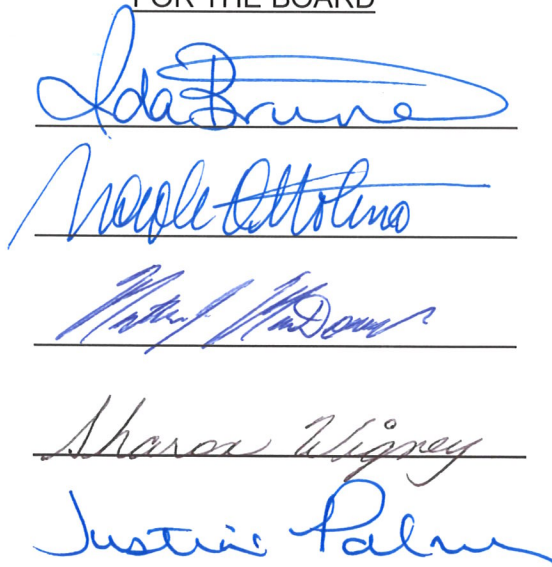 FOR THE BOARD
Ida Bruno
Nicole Ottolino
MacDonald
Sharon Wigney
Justin Palmer